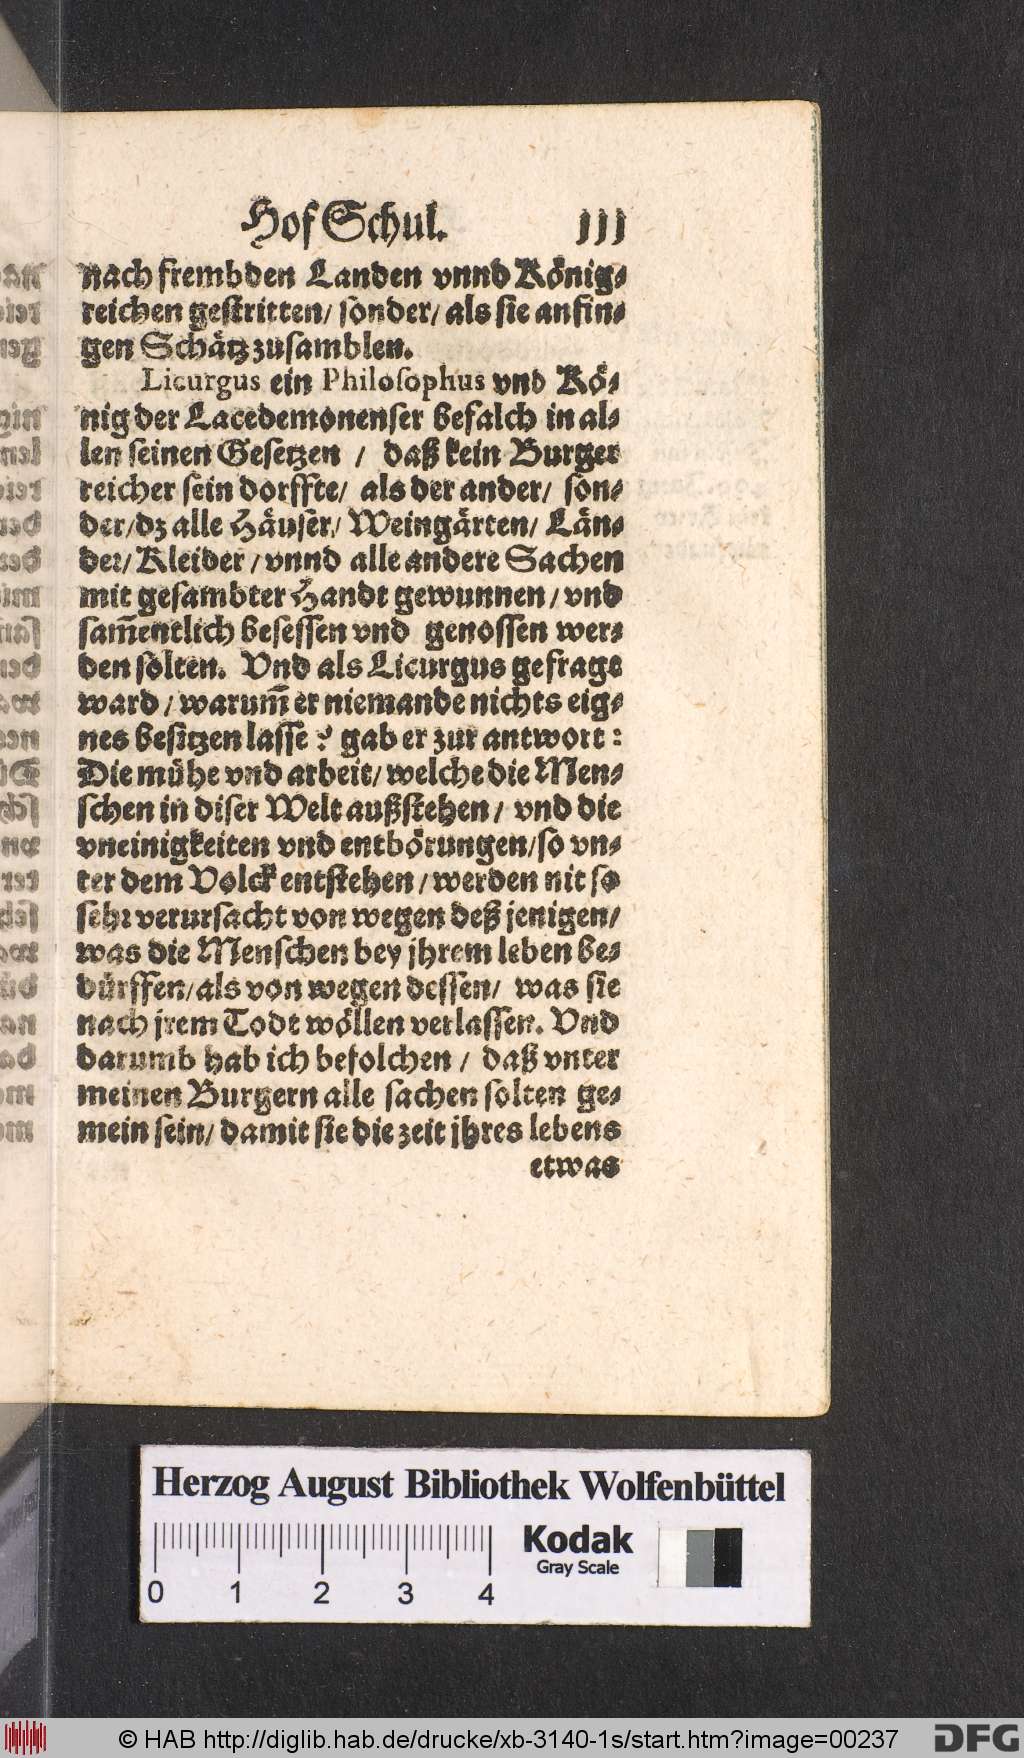 Hof Schul. 111
nach frembden Landen vnnd König⸗
reichen gestritten/ sonder/ als sie anfin⸗
gen Schätz zusamblen.
Licurgus ein Philosophus vnd Kö⸗
nig der Lacedemonenser befalch in al⸗
len seinen Gesetzen / daß kein Burger
reicher sein dorffte/ als der ander/ son⸗
der/ dz alle Häuser/ Weingärten/ Län⸗
der/ Kleider / vnnd alle andere Sachen
mit gesambter Handt gewunnen / vnd
sam̃entlich besessen vnd genossen wer⸗
den solten. Vnd als Licurgus gefragt
ward / warum̃ er niemande nichts eig⸗
nes besitzen lasse? gab er zur antwort:
Die mühe vnd arbeit/ welche die Men⸗
schen in diser Welt außstehen / vnd die
vneinigkeiten vnd entbörungen/ so vn⸗
ter dem Volck entstehen / werden nit so
sehr verursacht von wegen deß jenigen/
was die Menschen bey jhrem leben be⸗
dürffen/ als von wegen dessen/ was sie
nach jrem Todt wöllen verlassen. Vnd
darumb hab ich befolchen / daß vnter
meinen Burgern alle sachen solten ge⸗
mein sein/ damit sie die zeit jhres lebens
etwas
Herzog August Bibliothek Wolfenbüttel
0 1 2 3 4
Kodak
Gray Scale
© HAB http://diglib.hab.de/drucke/xb-3140-1s/start.htm?image=00237
DFG